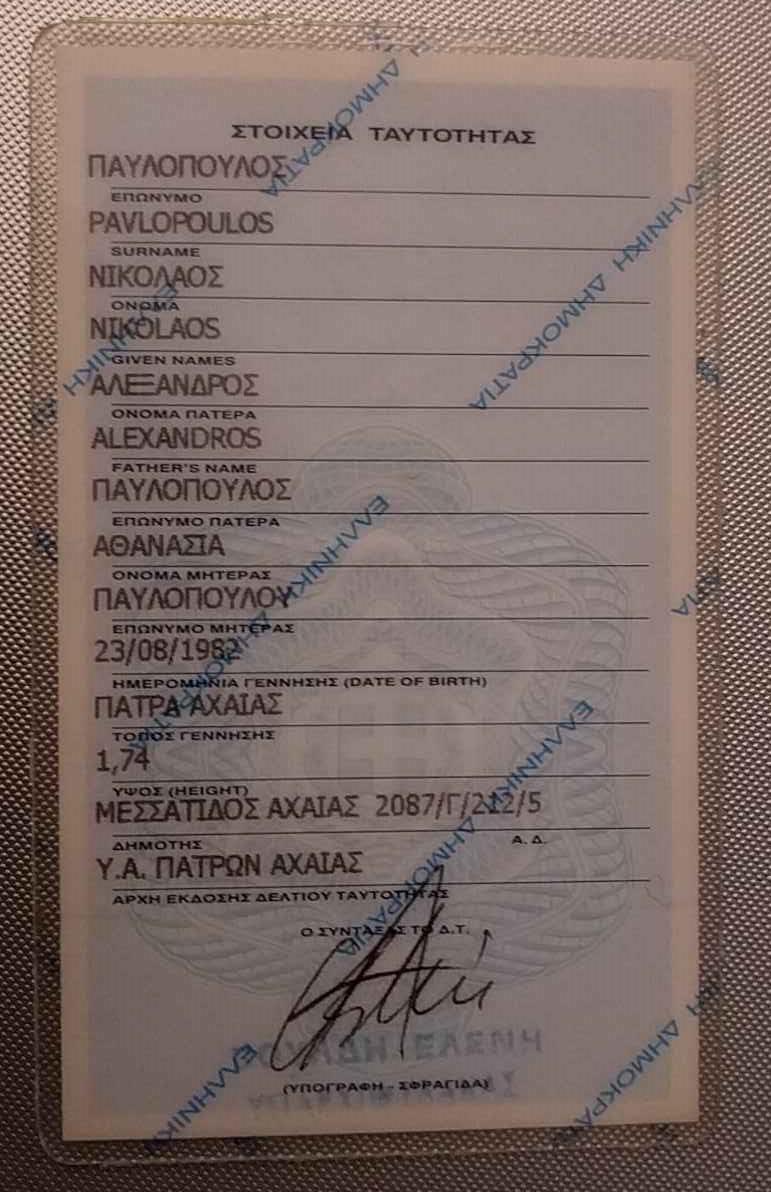 ΣΤΟΙΧΕΙΑ ΤΑΥΤΟΤΗΤΑΣ
ΠΑΥΛΟΠΟΥΛΟΣ
ΕΠΩΝΥΜΟ
PAVLOPOULOS
SURNAME
ΝΙΚΟΛΑΟΣ
ΟΝΟΜΑ
NIKOLAOS
GIVEN NAMES
ΑΛΕΞΑΝΔΡΟΣ
ΟΝΟΜΑ ΠΑΤΕΡΑ
ALEXANDROS
FATHER'S NAME
ΠΑΥΛΟΠΟΥΛΟΣ
ΕΠΩΝΥΜΟ ΠΑΤΕΡΑ
ΑΘΑΝΑΣΙΑ
ΟΝΟΜΑ ΜΗΤΕΡΑΣ
ΠΑΥΛΟΠΟΥΛΟΥ
ΕΠΩΝΥΜΟ ΜΗΤΕΡΑΣ
23/08/1982
ΗΜΕΡΟΜΗΝΙΑ ΓΕΝΝΗΣΗΣ (DATE OF BIRTH)
ΠΑΤΡΑ ΑΧΑΙΑΣ
ΤΟΠΟΣ ΓΕΝΝΗΣΗΣ
1,74
ΥΨΟΣ (HEIGHT)
ΜΕΣΣΑΤΙΔΟΣ ΑΧΑΙΑΣ 2087/Γ/212/5
ΔΗΜΟΤΗΣ Α. Δ.
Υ.Α. ΠΑΤΡΩΝ ΑΧΑΙΑΣ
ΑΡΧΗ ΕΚΔΟΣΗΣ ΔΕΛΤΙΟΥ ΤΑΥΤΟΤΗΤΑΣ
Ο ΣΥΝΤΑΞΑΣ ΤΟ Δ.Τ.
ΕΛΕΝΗ
(ΥΠΟΓΡΑΦΗ - ΣΦΡΑΓΙΔΑ)
ΕΛΛΗΝΙΚΗ ΔΗΜΟΚΡΑΤΙΑ
ΕΛΛΗΝΙΚΗ ΔΗΜΟΚΡΑΤΙΑ
ΕΛΛΗΝΙΚΗ ΔΗΜΟΚΡΑΤΙΑ
ΕΛΛΗΝΙΚΗ ΔΗΜΟΚΡΑΤΙΑ